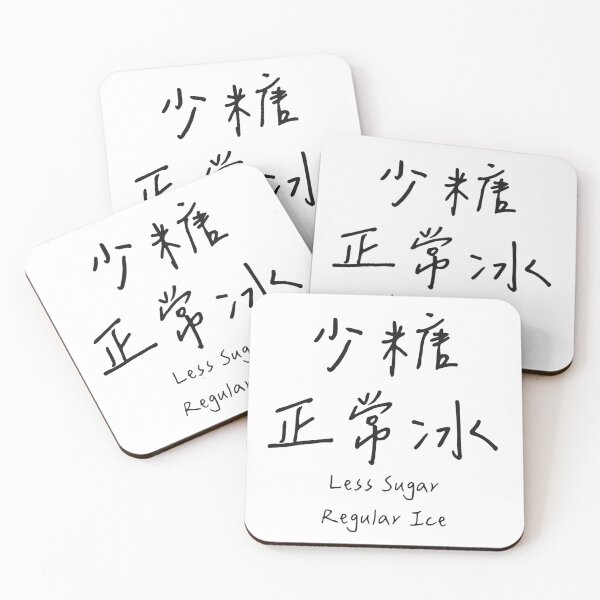 少糖
正常冰
少糖
正常冰
少糖
正常冰
Less Sugar
Regular
少糖
正常冰
Less Sugar
Regular Ice